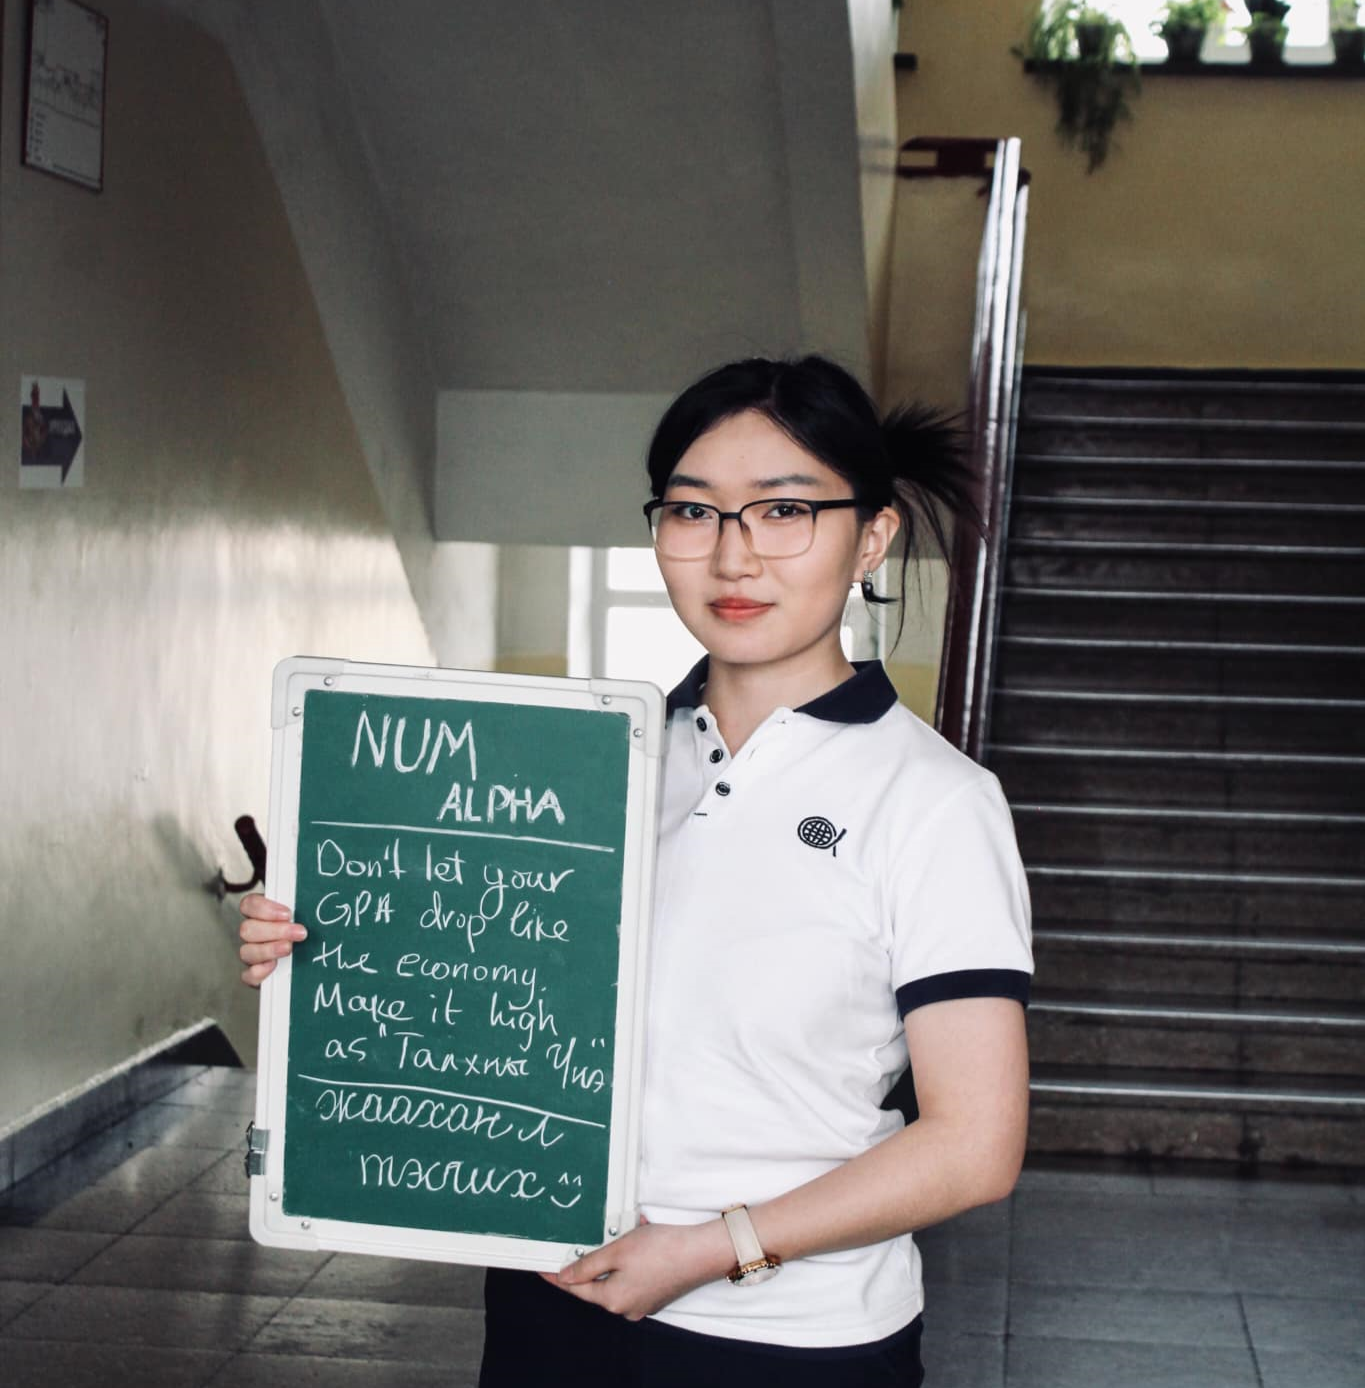 NUM
ALPHA
Don't let your
GPA drop like
the economy.
Make it high
as "Талхны Үнэ"
жаахан л
тэсчих